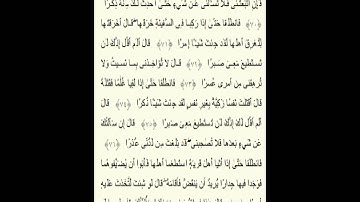 فَإِنِ اتَّبَعْتَنِي فَلَا تَسْأَلْنِي عَن شَيْءٍ حَتَّىٰ أُحْدِثَ لَكَ مِنْهُ ذِكْرًا
﴿٧٠﴾ فَانطَلَقَا حَتَّىٰ إِذَا رَكِبَا فِي السَّفِينَةِ خَرَقَهَا ۖ قَالَ أَخَرَقْتَهَا
لِتُغْرِقَ أَهْلَهَا لَقَدْ جِئْتَ شَيْئًا إِمْرًا ﴿٧١﴾ قَالَ أَلَمْ أَقُلْ إِنَّكَ لَن
تَسْتَطِيعَ مَعِيَ صَبْرًا ﴿٧٢﴾ قَالَ لَا تُؤَاخِذْنِي بِمَا نَسِيتُ وَلَا
تُرْهِقْنِي مِنْ أَمْرِي عُسْرًا ﴿٧٣﴾ فَانطَلَقَا حَتَّىٰ إِذَا لَقِيَا غُلَامًا فَقَتَلَهُ
قَالَ أَقَتَلْتَ نَفْسًا زَكِيَّةً بِغَيْرِ نَفْسٍ لَّقَدْ جِئْتَ شَيْئًا نُّكْرًا ﴿٧٤﴾
أَلَمْ أَقُل لَّكَ إِنَّكَ لَن تَسْتَطِيعَ مَعِيَ صَبْرًا ﴿٧٥﴾ قَالَ إِن سَأَلْتُكَ
عَن شَيْءٍ بَعْدَهَا فَلَا تُصَاحِبْنِي ۖ قَدْ بَلَغْتَ مِن لَّدُنِّي عُذْرًا ﴿٧٦﴾
فَانطَلَقَا حَتَّىٰ إِذَا أَتَيَا أَهْلَ قَرْيَةٍ اسْتَطْعَمَا أَهْلَهَا فَأَبَوْا أَن يُضَيِّفُوهُمَا
فَوَجَدَا فِيهَا جِدَارًا يُرِيدُ أَن يَنقَضَّ فَأَقَامَهُ ۖ قَالَ لَوْ شِئْتَ لَاتَّخَذْتَ عَلَيْهِ